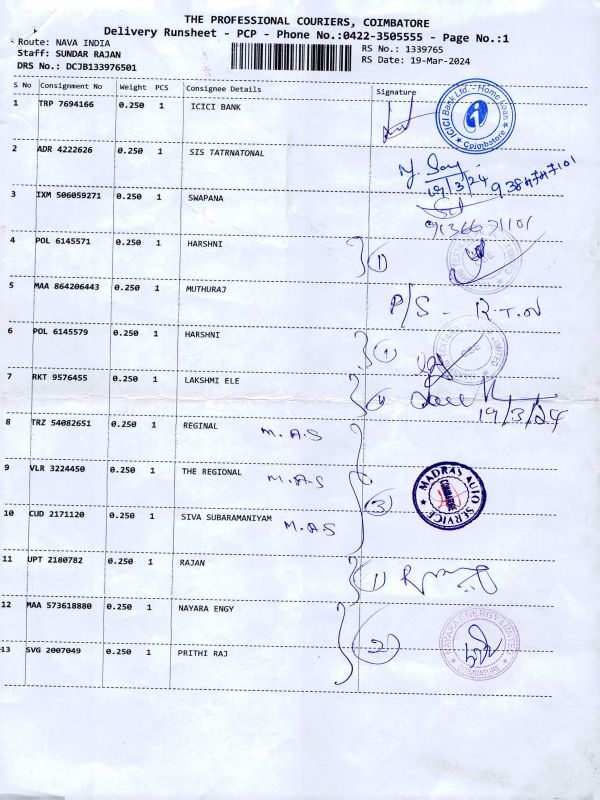 THE PROFESSIONAL COURIERS, COIMBATORE
Delivery Runsheet - PCP - Phone No.:0422-3505555 - Page No.:1
Route: NAVA INDIA
RS No.: 1339765
Staff: SUNDAR RAJAN
RS Date: 19-Mar-2024
DRS No.: DCJB133976501
S No Consignment No Weight PCS Consignee Details Signature
1 TRP 7694166 0.250 1 ICICI BANK
ICICI Bank Ltd. - Home Loan
Coimbatore
2 ADR 4222626 0.250 1 SIS TATRNATONAL
19/3/24
3 IXM 506059271 0.250 1 SWAPANA
4 POL 6145571 0.250 1 HARSHNI 1
5 MAA 864206443 0.250 1 MUTHURAJ P/S - R.T.ON
6 POL 6145579 0.250 1 HARSHNI 1
7 RKT 9576455 0.250 1 LAKSHMI ELE
19/3/24
8 TRZ 54082651 0.250 1 REGINAL M.A.S
9 VLR 3224450 0.250 1 THE REGIONAL M.A.S 3
MADRAS AUTO SERVICE
10 CUD 2171120 0.250 1 SIVA SUBARAMANIYAM M.A.S
11 UPT 2180782 0.250 1 RAJAN 1
12 MAA 573618880 0.250 1 NAYARA ENGY 2
NAYARA ENERGY LIMITED
COIMBATORE
13 SVG 2007049 0.250 1 PRITHI RAJ